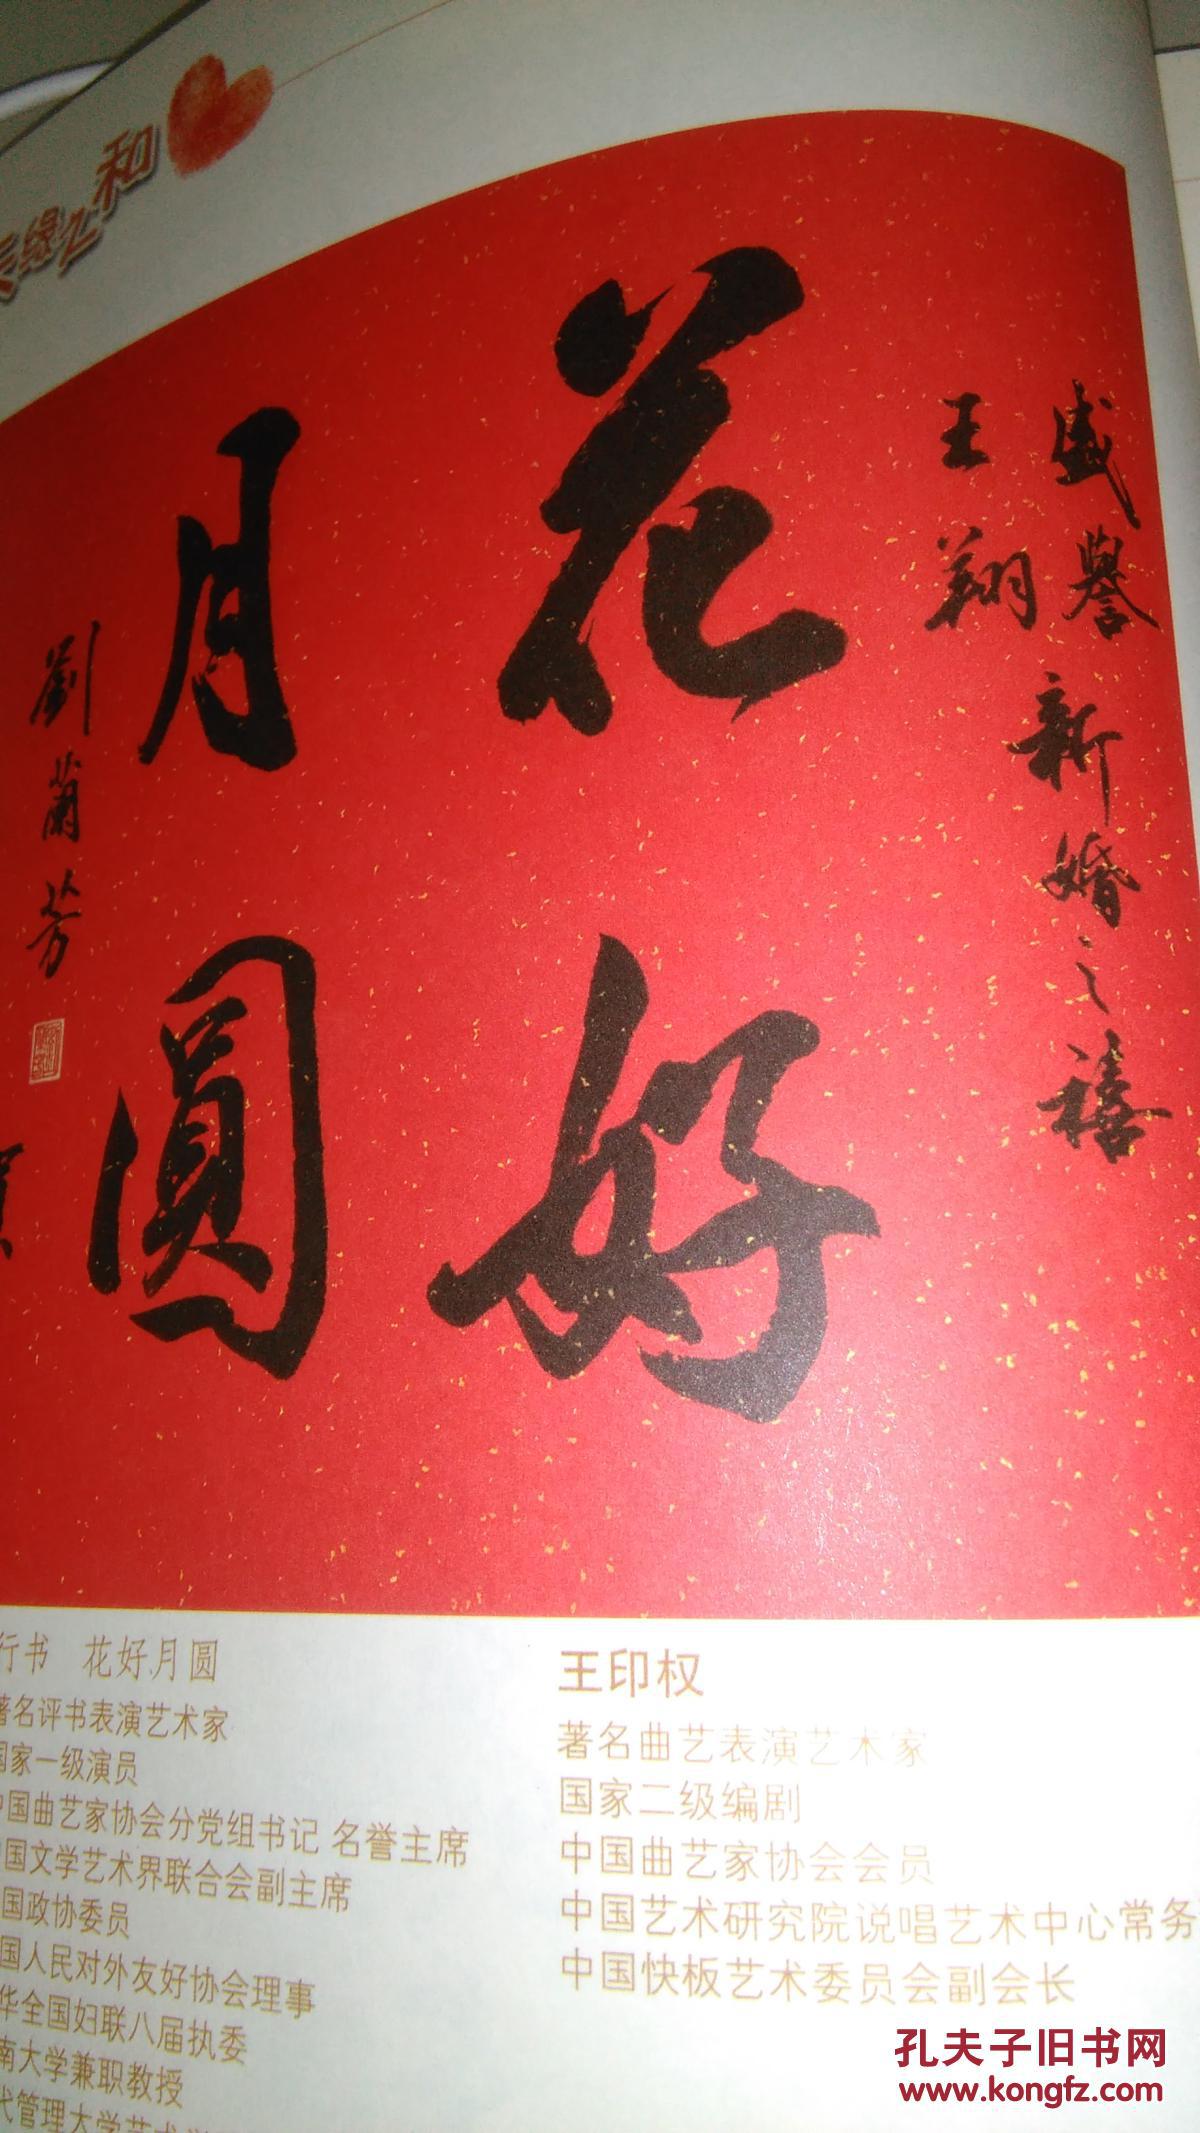 缘之和
盛誉
王翔
新婚之禧
花好
月圓
劉蘭芳
贺
行书 花好月圆
著名评书表演艺术家
国家一级演员
中国曲艺家协会分党组书记 名誉主席
中国文学艺术界联合会副主席
国政协委员
国人民对外友好协会理事
华全国妇联八届执委
南大学兼职教授
代管理大学艺术
王印权
著名曲艺表演艺术家
国家二级编剧
中国曲艺家协会会员
中国艺术研究院说唱艺术中心常务
中国快板艺术委员会副会长
孔夫子旧书网
www.kongfz.com